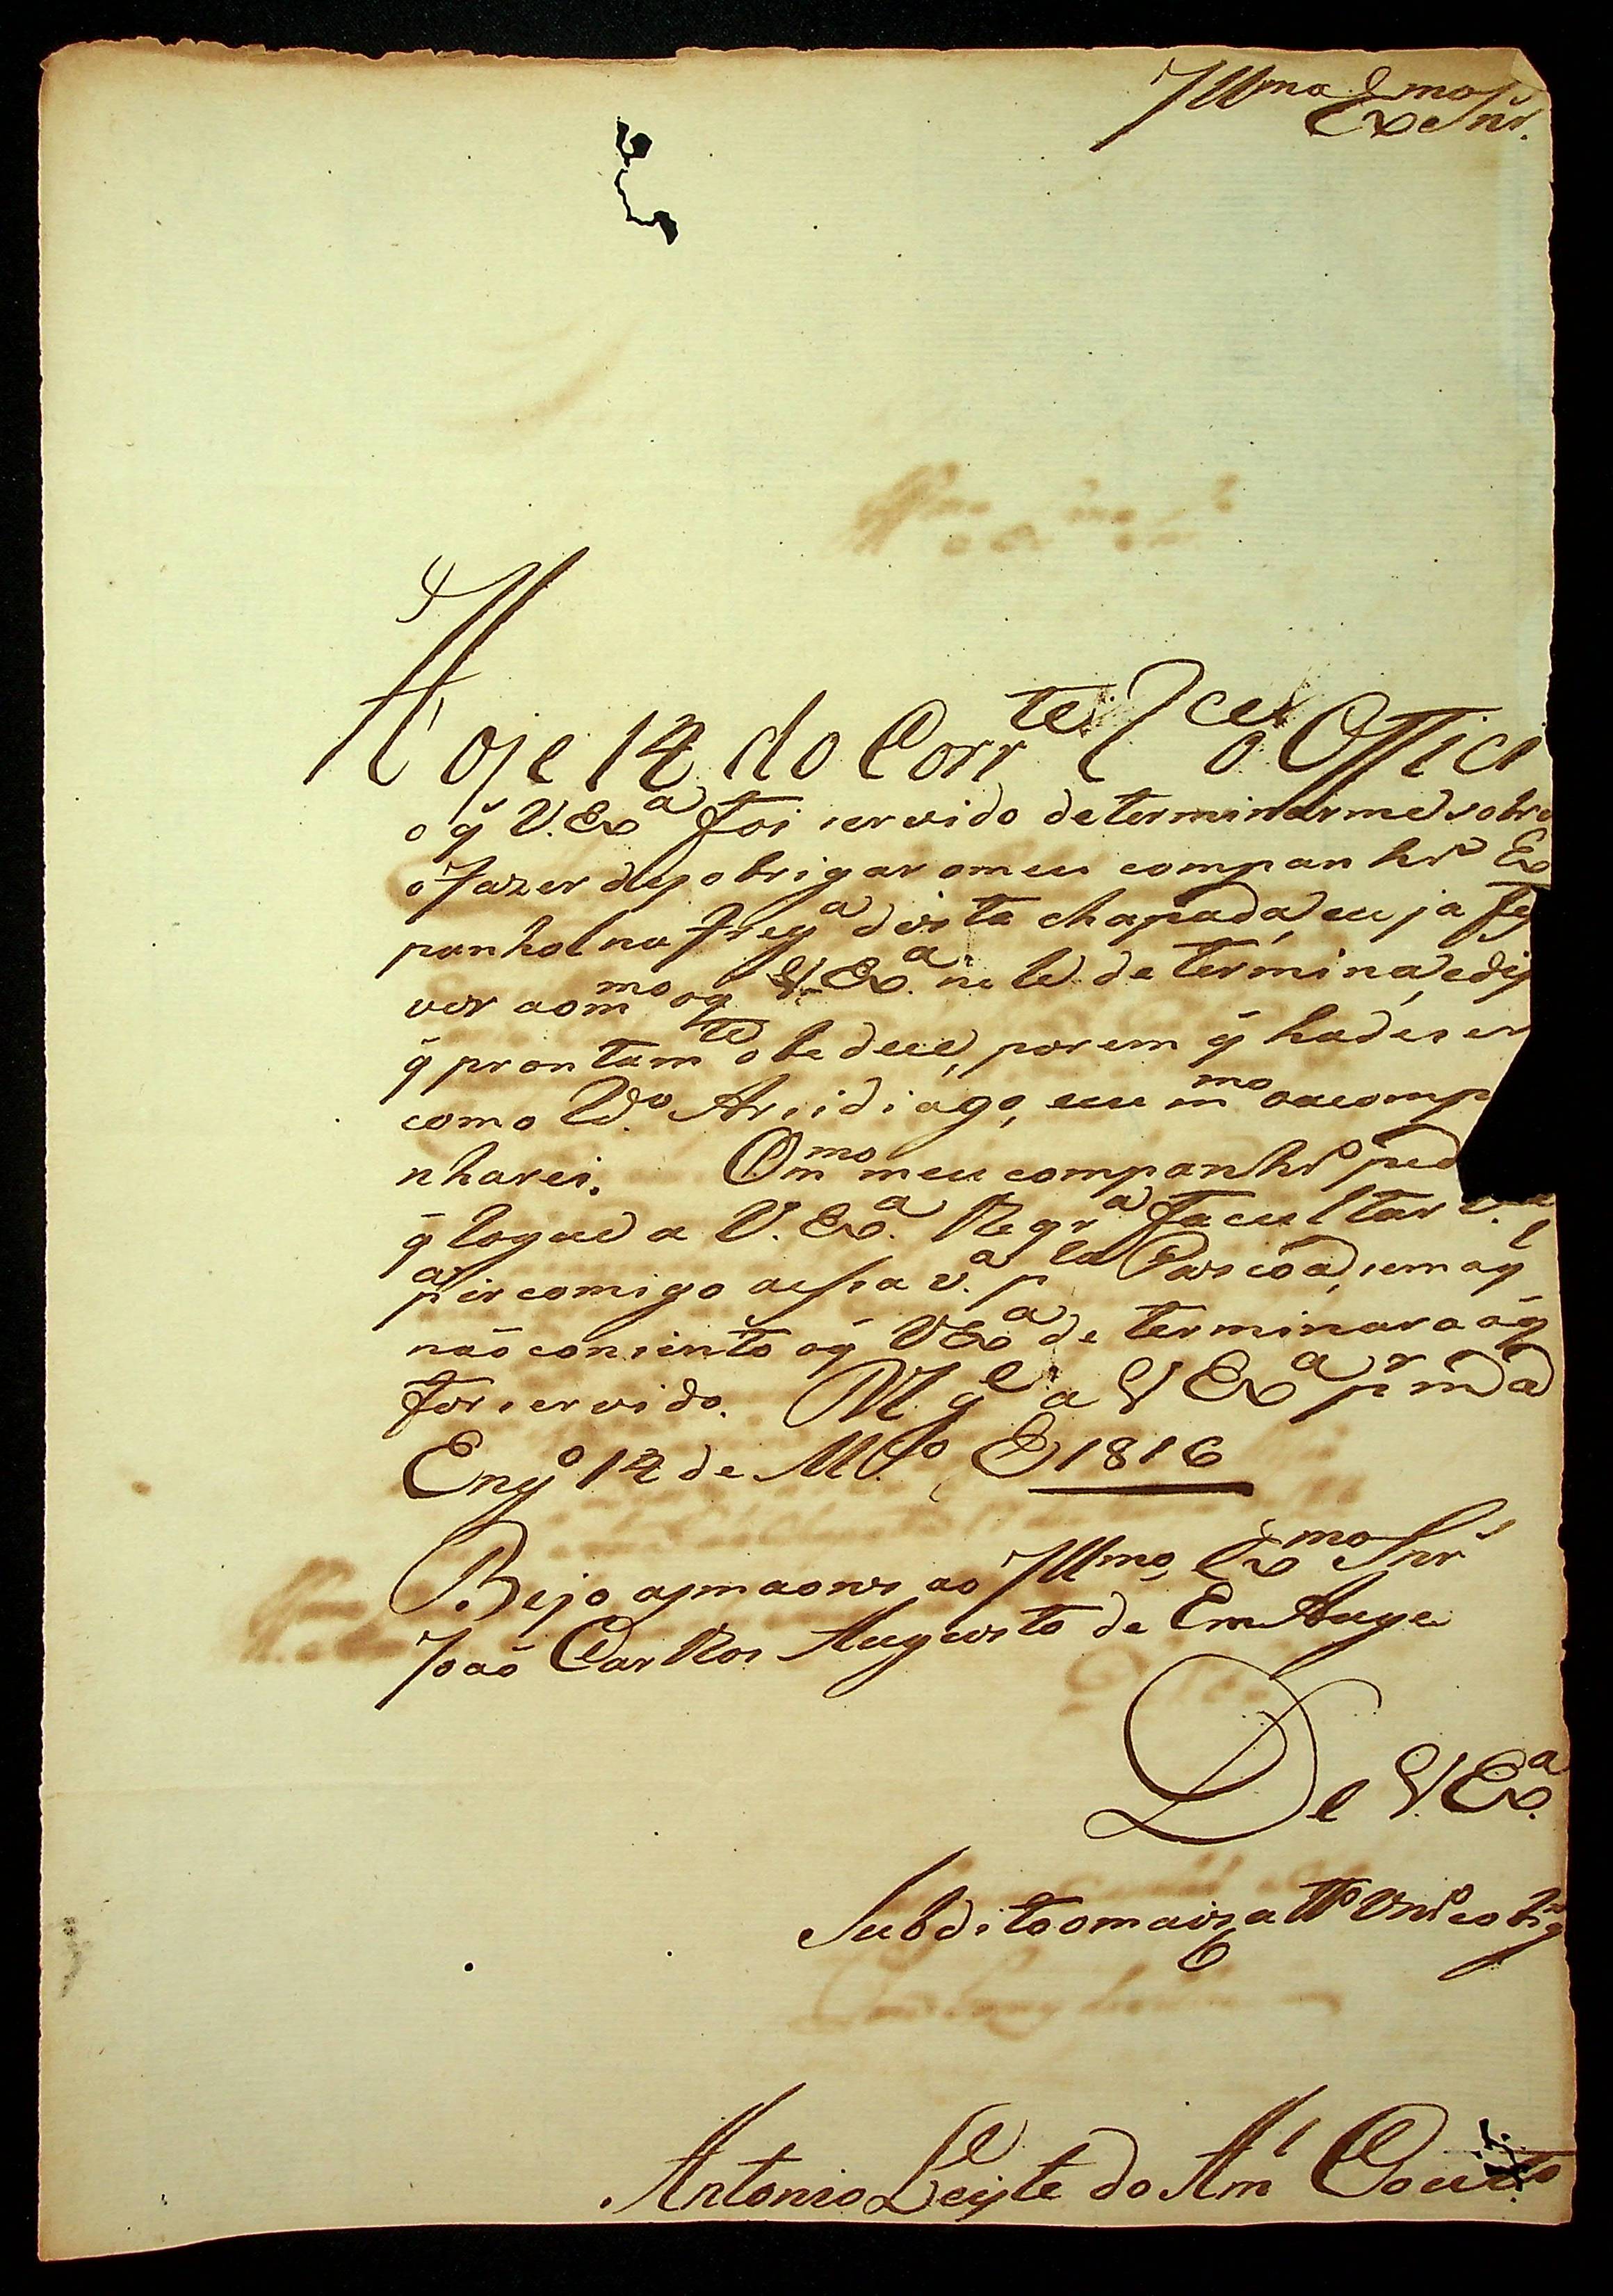 Illmo Exmo Snr.
Hoje 14 do Corrte Rcei o Offici
o q̃ V. Exa foi servido determinarme sobre
o fazer desobrigar o meu companhro Es
panhol na Frega desta chapada, eu ja fiz
ver ao mmo o q V. Exa nele determina, e diz
q̃ prontamte obedece, porem q̃ hade ser
como Do Arsidiago, e eu mmo o acomp
nharei. O mmo meu companhro ped
q̃ rogue a V. Exa Regra facultar
pa ir comigo a essa va pla Pascoa, sem o q̃
não consinto o q̃ V Exa determinara o q̃
for servido. N. ge a V Exa pr m a
Engo 14 de Mço D 1816
Bejo as maons ao Illmo, Exmo Snr
João Carllos Augusto de Em Auge
De V Exa.
Subdito o mais atto Vnr e obrigo
Antonio Leyte do Aml Couto